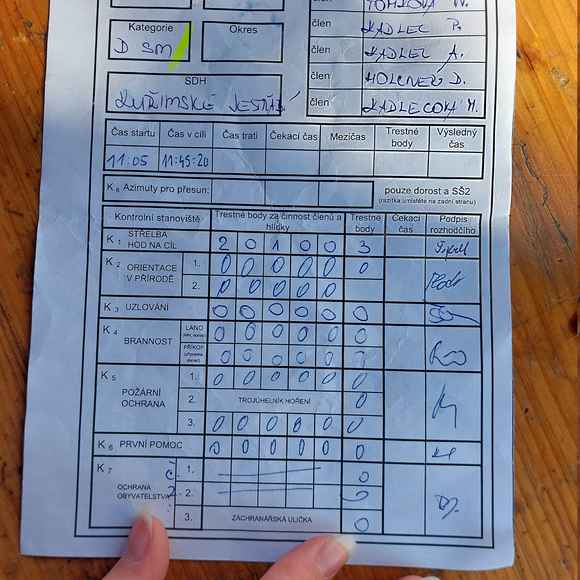 člen
Kategorie
D SM
Okres
člen KADLEC P.
člen KADLEC A.
SDH
člen
KUŘIMSKÉ JESTŘÁBÍ
člen KADLECOVÁ M.
Čas startu Čas v cíli Čas trati Čekací čas Mezičas Trestné body Výsledný čas
11:05 11:45:20
K 8 Azimuty pro přesun: pouze dorost a SŠ2
(razítka umístěte na zadní stranu)
Kontrolní stanoviště Trestné body za činnost členů a hlídky Trestné body Čekací čas Podpis rozhodčího
K 1 STŘELBA HOD NA CÍL 2 0 1 0 0 3
K 2 ORIENTACE V PŘÍRODĚ 1. 0 0 0 0 0 0
2. 0 0 0 0 0
K 3 UZLOVÁNÍ 0 0 0 0 0 0
K 4 BRANNOST LANO 0 0 0 0 0 0
PŘÍKOP 0 0 0 0 0
K 5 POŽÁRNÍ OCHRANA 1. 0 0 0 0 0 0
2. TROJÚHELNÍK HOŘENÍ 0
3. 0 0 0 0 0 0
K 6 PRVNÍ POMOC 0 0 0 0 0 0
K 7 OCHRANA OBYVATELSTVA 1. 0
2. 0
3. ZÁCHRANÁŘSKÁ ULIČKA 0